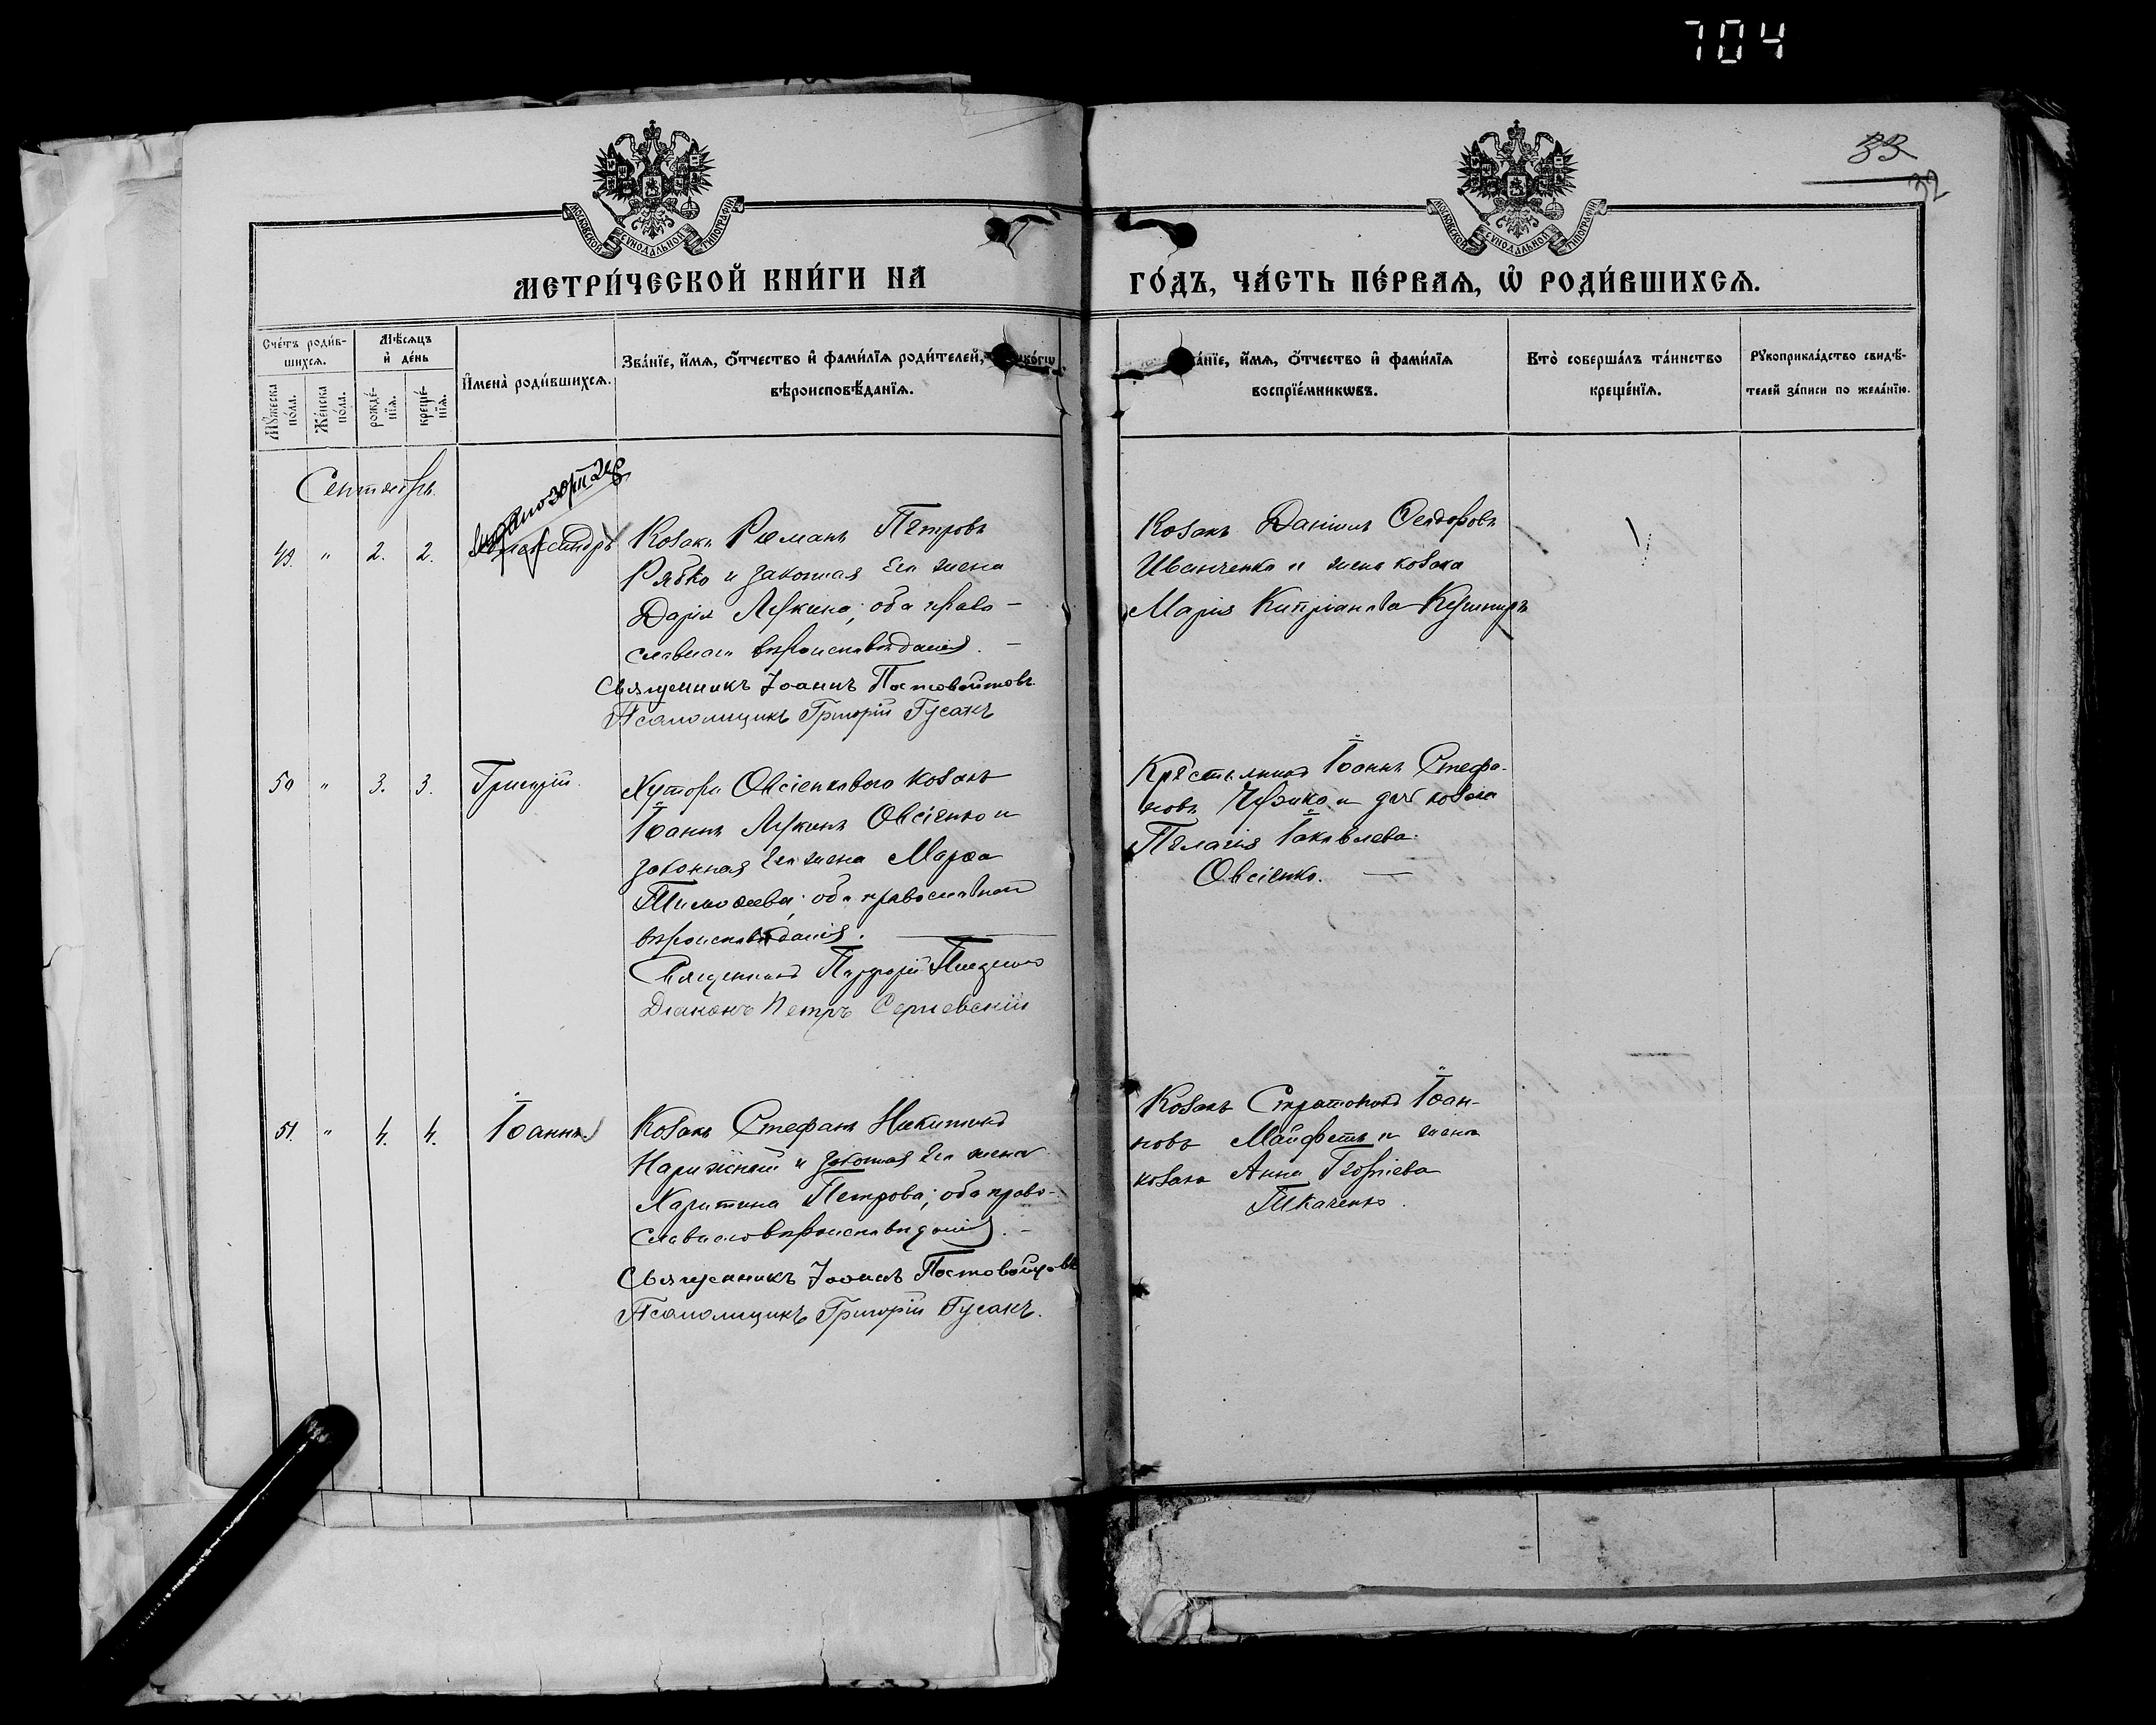 704
33
32
МОСКОВСКОЙ СѴНОДАЛЬНОЙ ТИПОГРАФІИ
МОСКОВСКОЙ СѴНОДАЛЬНОЙ ТИПОГРАФІИ
МЕТРИ́ЧЕСКОЙ КНИ́ГИ НА
ГО́ДЪ, ЧА́СТЬ ПЕ́РВАѦ, Ѡ҆ РОДИ́ВШИХСѦ.
Сче́тъ роди́в-
шихсѧ.
Мѣ́сѧцъ
и҆ де́нь
Мꙋ́жеска
по́ла.
Же́нска
по́ла.
рожде́-
нїѧ.
креще́-
нїѧ.
И҆мена̀ роди́вшихсѧ.
Зва́нїе, и҆́мѧ, ѻ҆́тчество и҆ фами́лїѧ роди́телей,
вѣроисповѣ́данїѧ.
а́нїе, и҆́мѧ, ѻ҆́тчество и҆ фами́лїѧ
воспрїе́мникѡвъ.
Кто̀ соверша́лъ та́инство
креще́нїѧ.
Рꙋкоприкла́дство свидѣ́-
телей за́писи по жела́нїю.
Сентябрь.
49. " 2. 2. Александръ
Козакъ Романъ Петровъ
Рябко и законная его жена
Дарія Лукина; оба право-
славнаго вѣроисповѣданія. —
Священникъ Іоаннъ Постовойтовъ
Псаломщикъ Григорій Гусакъ
Козакъ Даніилъ Ѳедоровъ
Иванченко и жена козака
Марія Кипріанова Кушниръ
50 " 3. 3. Григорій.
Хутора Овсіенкового козакъ
Іоаннъ Лукинъ Овсіенко и
законная его жена Марѳа
Тимоѳеева; оба православнаго
вѣроисповѣданія. —
Священникъ
Діаконъ Петръ Сергіевскій
Крестьянинъ Іоаннъ Стефа-
новъ и дочь козака
Пелагія Іаковлева
Овсіенко. —
51. " 4. 4. Іоаннъ
Козакъ Стефанъ Никитинъ
Нарижный и законная его жена
Харитина Петрова; оба право-
славнаго вѣроисповѣданія. —
Священникъ Іоаннъ Постовойтовъ
Псаломщикъ Григорій Гусакъ.
Козакъ Стратоникъ Іоан-
новъ Майфетъ и жена
козака Анна Георгіева
Ткаченко.